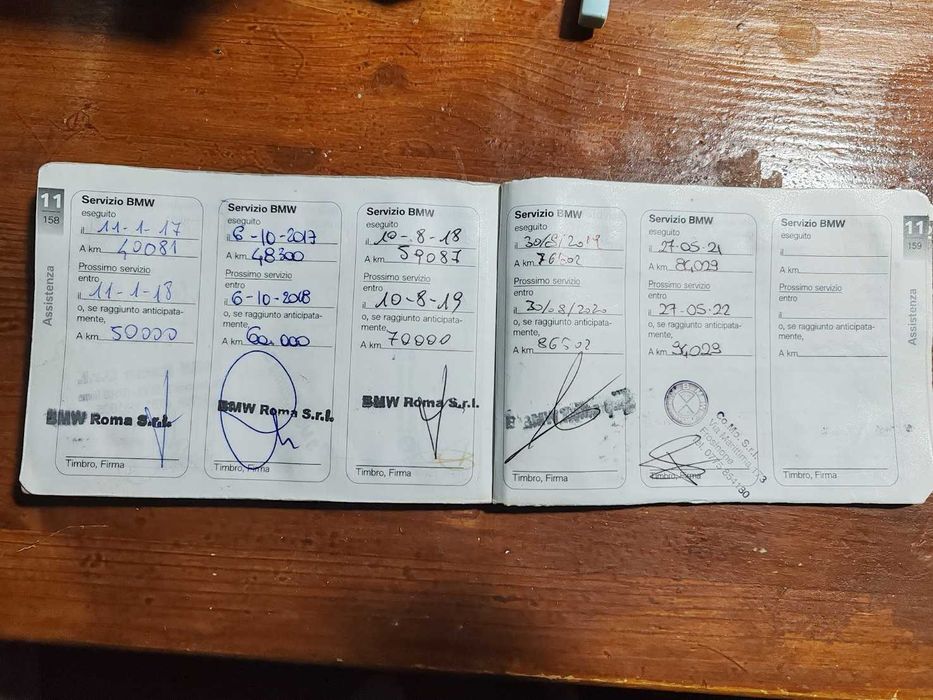 11
158
Assistenza
Servizio BMW
eseguito
il 11-1-17
A km 40081
Prossimo servizio
entro
il 11-1-18
o, se raggiunto anticipata-
mente,
A km 50000
BMW Roma S.r.l.
Timbro, Firma
Servizio BMW
eseguito
il 6-10-2017
A km 48300
Prossimo servizio
entro
il 6-10-2018
o, se raggiunto anticipata-
mente,
A km 60.000
BMW Roma S.r.l.
Timbro, Firma
Servizio BMW
eseguito
il 10-8-18
A km 59087
Prossimo servizio
entro
il 10-8-19
o, se raggiunto anticipata-
mente,
A km 70000
BMW Roma S.r.l.
Timbro, Firma
Servizio BMW
eseguito
il
A km 76502
Prossimo servizio
entro
il
o, se raggiunto anticipata-
mente,
A km 86502
Timbro, Firma
Servizio BMW
eseguito
il 27-05-21
A km 84029
Prossimo servizio
entro
il 27-05-22
o, se raggiunto anticipata-
mente,
A km 94029
Co.Mo. S.r.l.
Via Marittima,
Frosinone
Timbro, Firma
Servizio BMW
eseguito
il
A km
Prossimo servizio
entro
il
o, se raggiunto anticipata-
mente,
A km
Timbro, Firma
11
159
Assistenza